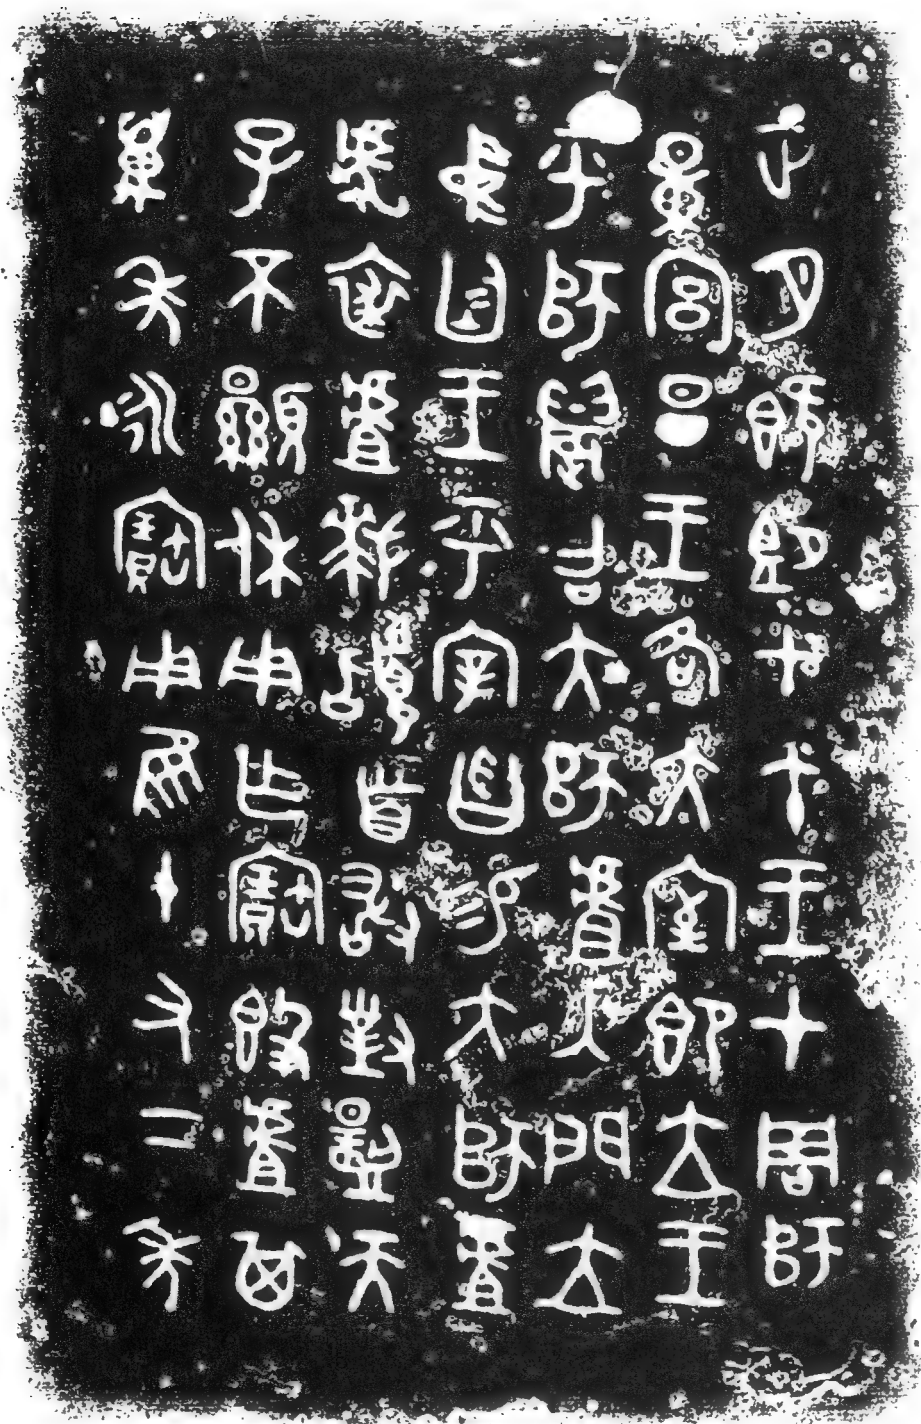 正月既望甲午王才周師
量宮旦王各大室即立王
乎師晨召大師虘入門立
中廷王乎宰曶易大師虘
虎裘虘拜𩒨首敢對揚天
子不顯休用乍寶簋虘其
萬年永寶用隹十又二年